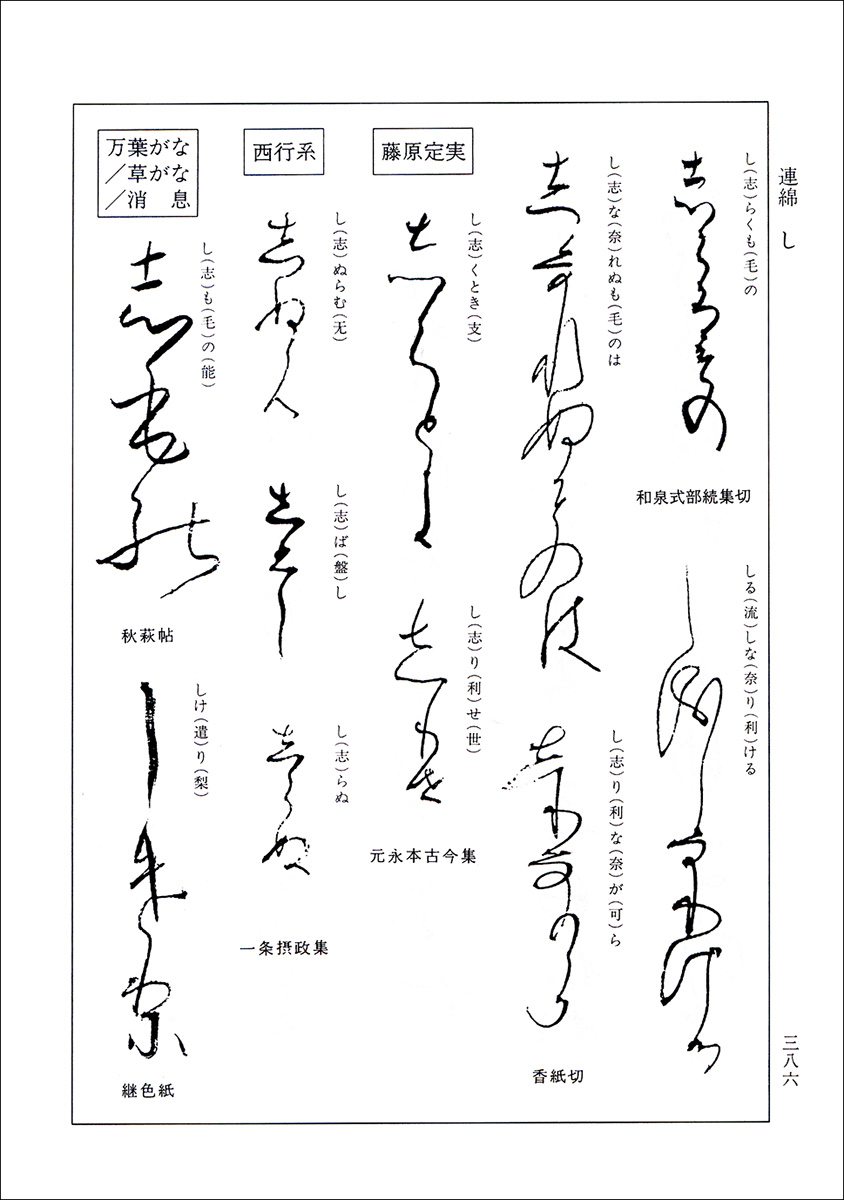 連綿 し
三八六
し(志)らくも(毛)の
和泉式部続集切
しる(流)しな(奈)り(利)ける
し(志)な(奈)れぬも(毛)のは
し(志)り(利)な(奈)が(可)ら
香紙切
藤原定実
し(志)くとき(支)
し(志)り(利)せ(世)
元永本古今集
西行系
し(志)ぬらむ(无)
し(志)ば(盤)し
し(志)らぬ
一条摂政集
万葉がな
／草がな
／消息
し(志)も(毛)の(能)
秋萩帖
しけ(遣)り(梨)
継色紙